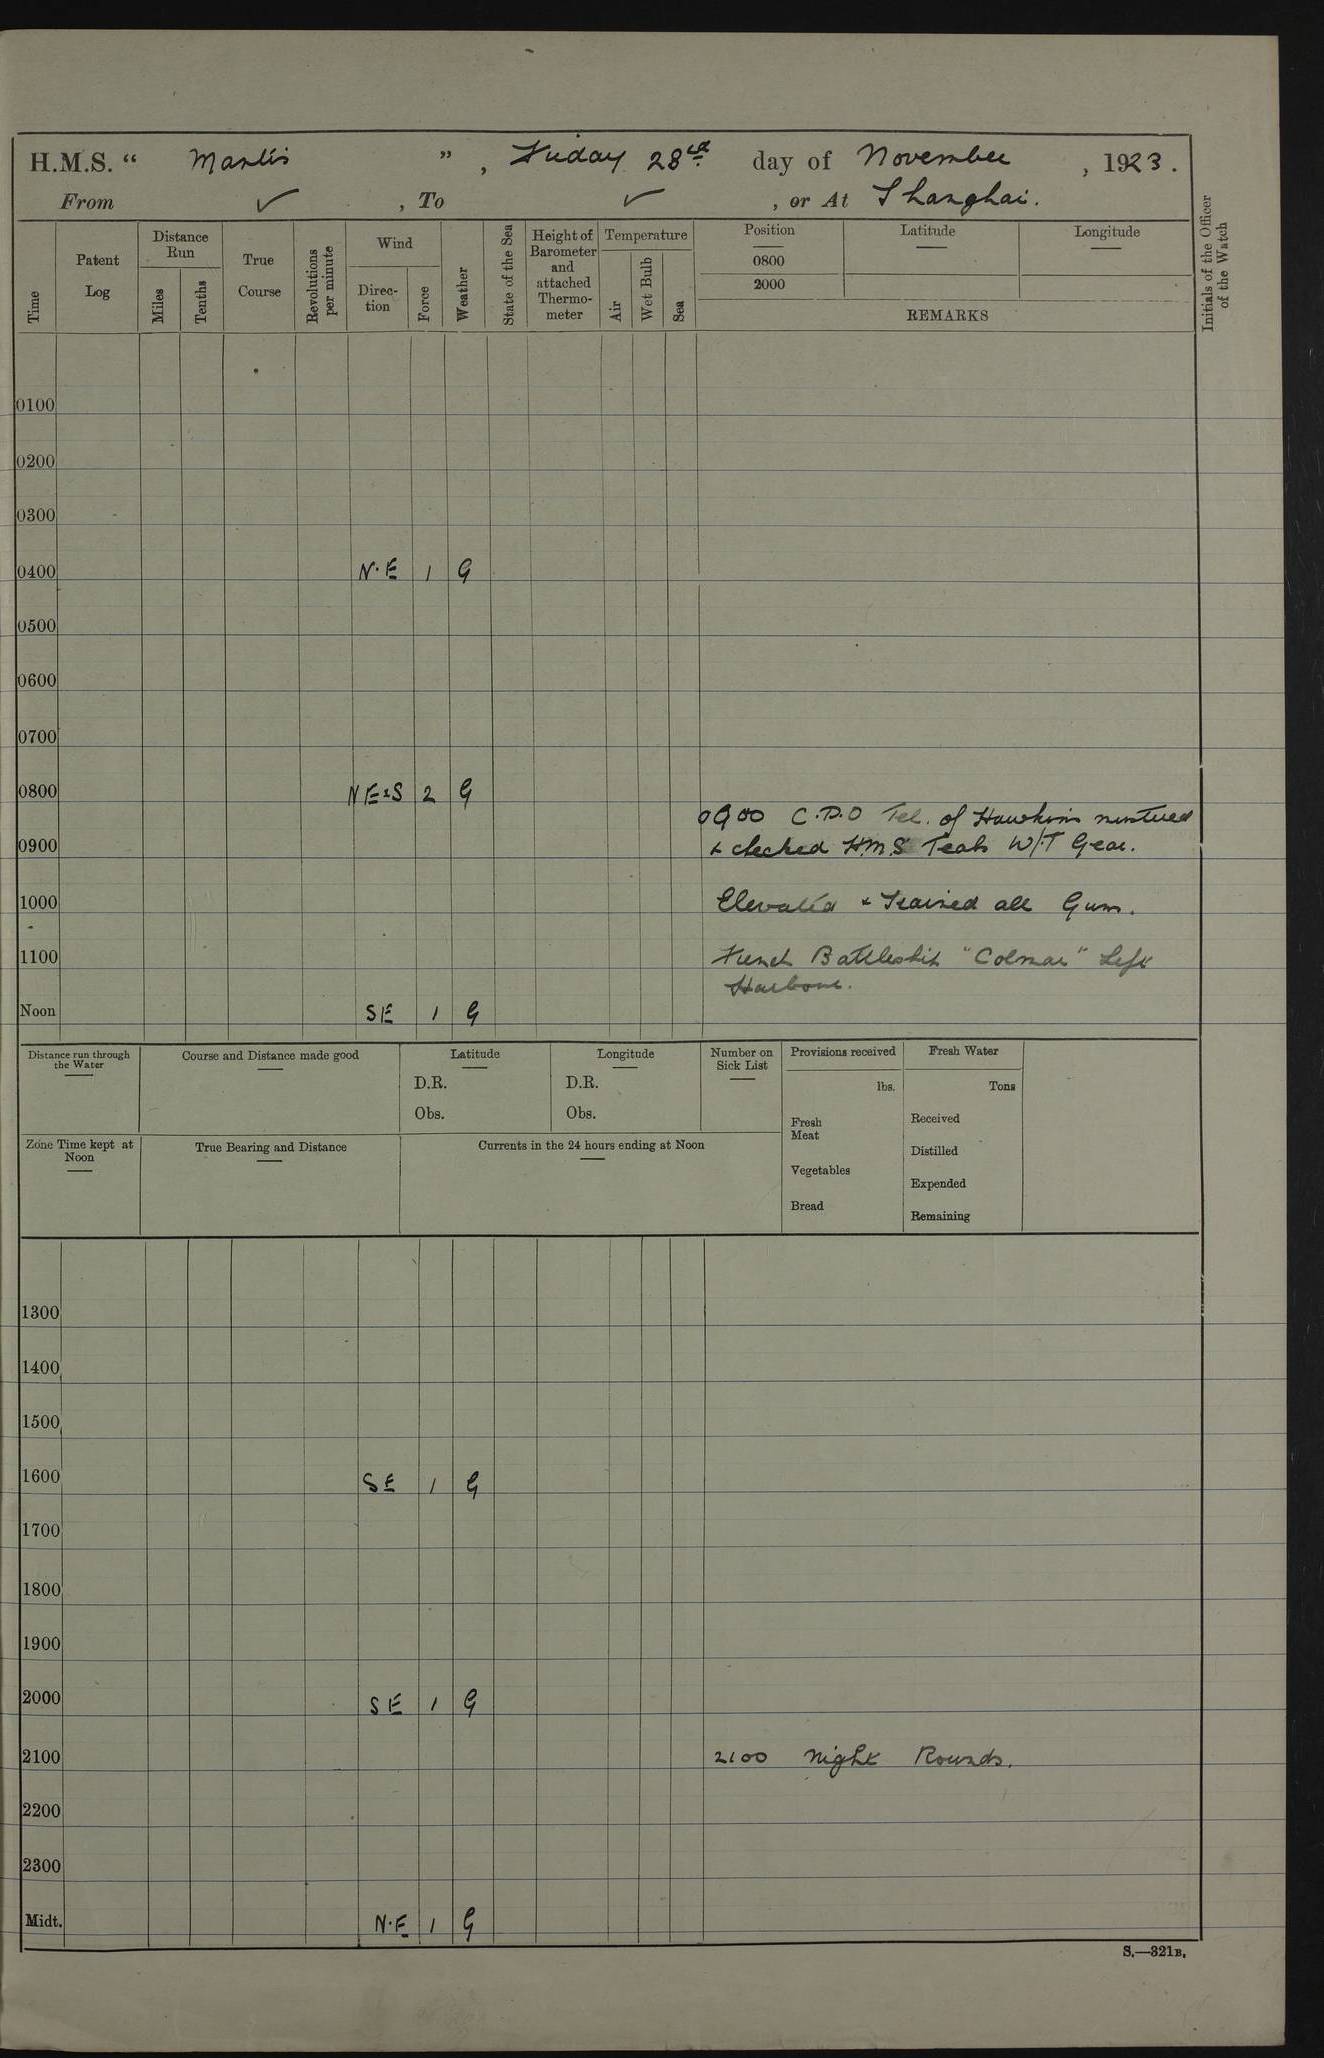 H.M.S. “ Mantis ” , Friday 28th day of November , 1923 .
From ✓ , To ✓ , or At Shanghai.
Time
Patent Log
Distance Run
Miles
Tenths
True Course
Revolutions per minute
Wind
Direc-tion
Force
Weather
State of the Sea
Height of Barometer and attached Thermo-meter
Temperature
Air
Wet Bulb
Sea
Position
0800
2000
Latitude
Longitude
REMARKS
Initials of the Officer of the Watch
0100
0200
0300
0400 N.E 1 G
0500
0600
0700
0800 NE S 2 G
0900 C.P.O Tel. of Hawkins
0900 & checked H.M.S Teals W/T Gear.
1000 Elevated & Trained all Guns.
1100 French Battleship "Colmar" Left
Harbour.
Noon SE 1 G
Distance run through the Water
Course and Distance made good
Latitude
D.R.
Obs.
Longitude
D.R.
Obs.
Number on Sick List
Provisions received
lbs.
Fresh Meat
Vegetables
Bread
Fresh Water
Tons
Received
Distilled
Expended
Remaining
Zone Time kept at Noon
True Bearing and Distance
Currents in the 24 hours ending at Noon
1300
1400
1500
1600 SE 1 G
1700
1800
1900
2000 SE 1 G
2100 2100 Night Rounds.
2200
2300
Midt. N.E 1 G
S.—321B.